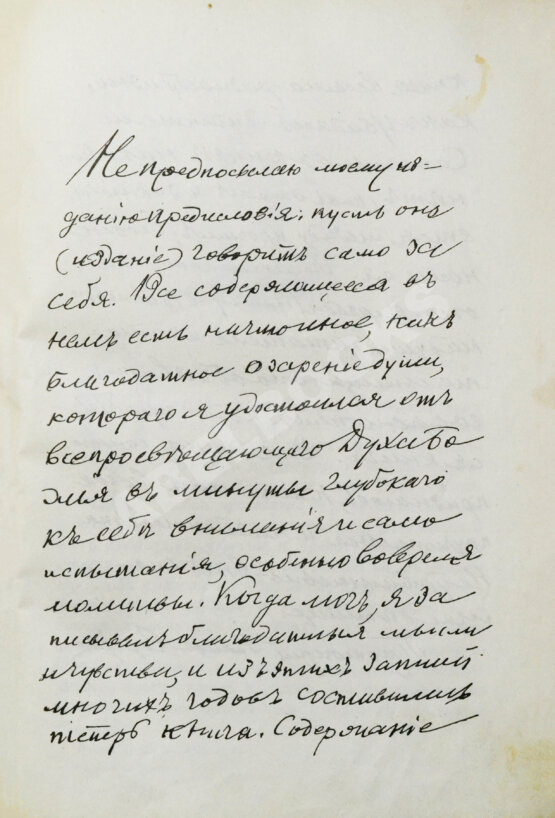 Не предпосылаю моему из=
данію предисловія: пусть оно
(изданіе) говоритъ само за
себя. Все содержащееся въ
немъ есть ничто иное, какъ
благодатное озареніе души,
котораго я удостоился отъ
всепросвѣщающаго Духа Бо
жія въ минуты глубокаго
къ себѣ вниманія и само
испытанія, особенно во время
молитвы. Когда могъ, я за
писывалъ благодатныя мысли
и чувства, и изъ этихъ записей
многихъ годовъ составилась
теперь книга. Содержаніе